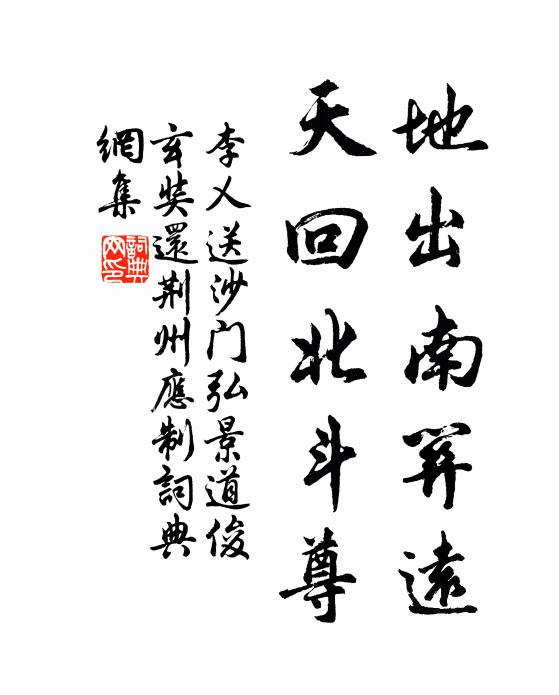 地出南關遠
天回北斗尊
李乂送沙门弘景道俊
玄奘還荆州應制詞典
網集
詞典网印